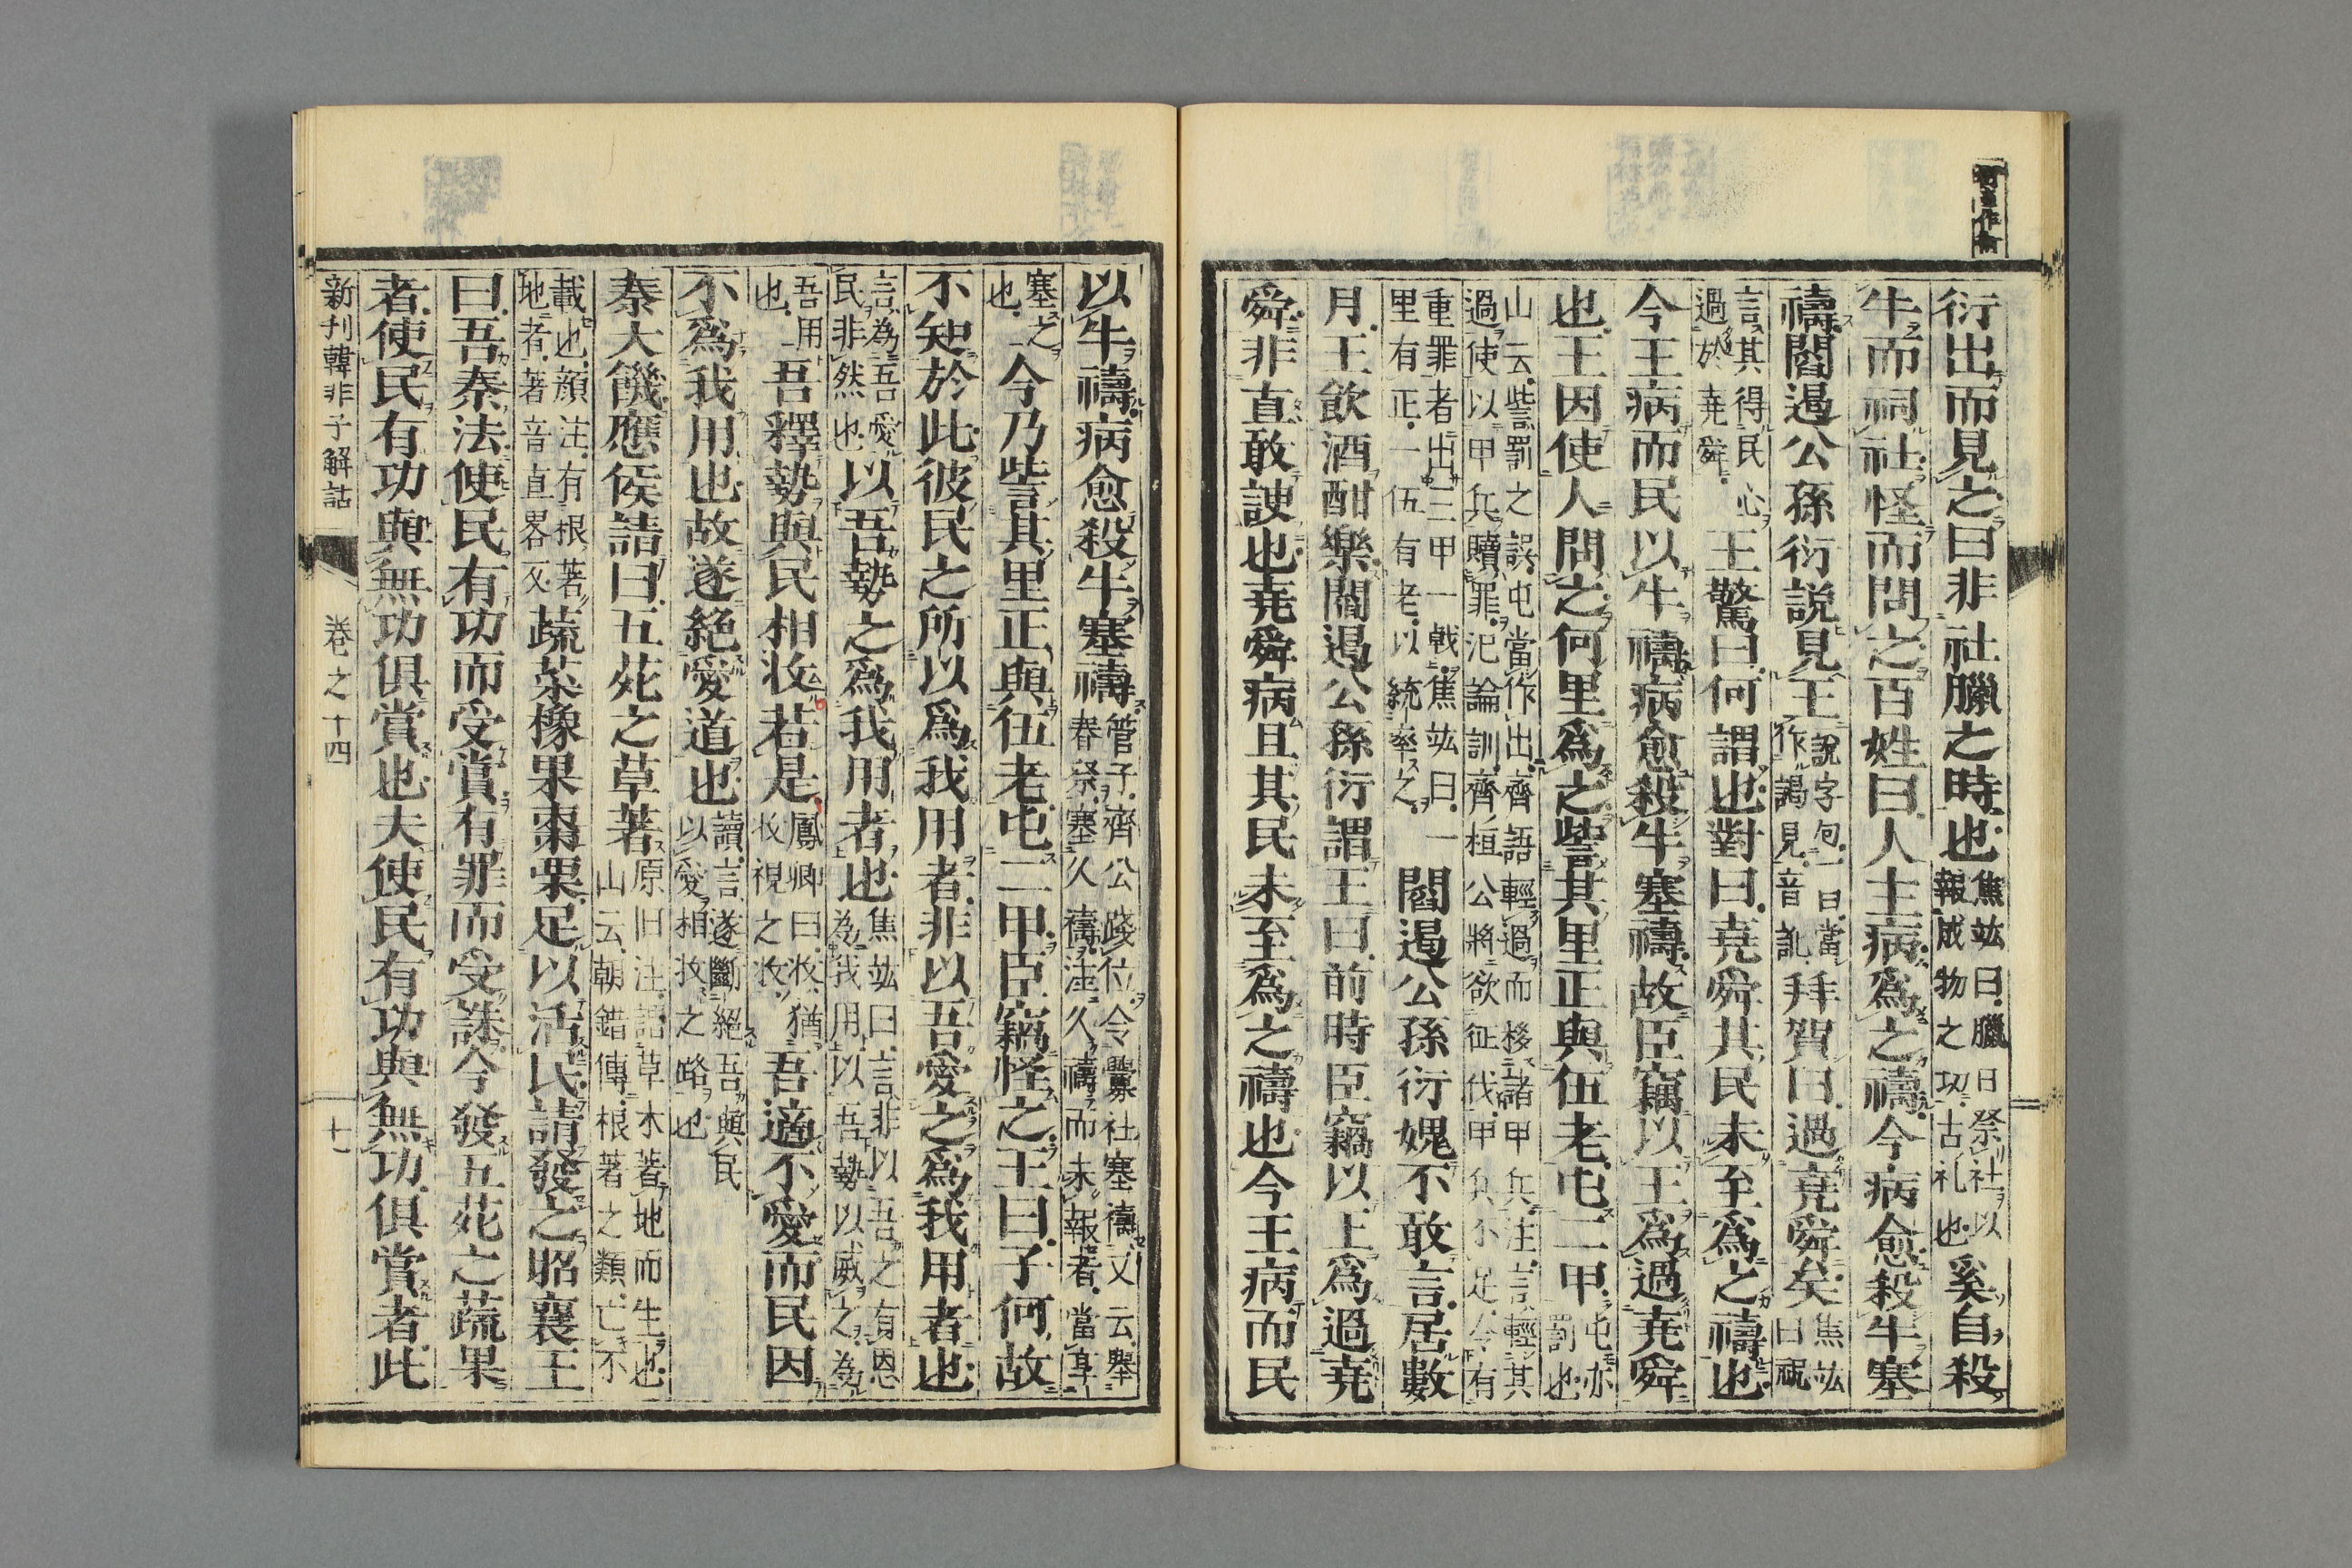 衍出而見之曰非社臘之時也焦竑曰臘日祭社以報成物之功古礼也奚自殺
牛而祠社怪而問之百姓曰人主病爲之禱今病愈殺牛塞
禱閻遏公孫衍説見王説字句一曰當作謁見音訛拜賀曰過堯舜矣焦竑曰祝
言其得民心過於堯舜王驚曰何謂也對曰堯舜其民未至爲之禱也
今王病而民以牛禱病愈殺牛塞禱故臣竊以王爲過堯舜
也王因使人問之何里爲之訾其里正與伍老屯二甲屯亦罰也
山云訾罰之誤屯當作出齊語輕過而移諸甲兵注言輕其過使以甲兵贖罪氾論訓齊桓公將欲征伐甲兵不足令有
重罪者出三甲一戟焦竑曰一里有正一伍有老以統率之閻遏公孫衍媿不敢言居數
月王飲酒酣樂閻遏公孫衍謂王曰前時臣竊以王爲過堯
舜非直敢諛也堯舜病且其民未至爲之禱也今王病而民
以牛禱病愈殺牛塞禱管子齊公踐位令釁社塞禱又云舉春祭塞久禱注久禱而未報者當享
塞之也今乃訾其里正與伍老屯二甲臣竊怪之王曰子何故
不知於此彼民之所以爲我用者非以吾愛之爲我用者也
言為吾愛民非然也以吾勢之爲我用者也焦竑曰言非以吾之有恩為我用以吾勢以威之為
吾用也吾釋勢與民相收若是鳳卿曰收猶收視之收吾適不愛而民因
不爲我用也故遂絶愛道也讀言遂斷絕吾與民以愛相收之路也
秦大饑應侯請曰五苑之草著原旧注語草木著地而生也山云朝錯傳根著之類亡不
載也顔注有根著地者著音直畧反蔬菜橡果棗栗足以活民請發之昭襄王
曰吾秦法使民有功而受賞有罪而受誅今發五苑之蔬果
者使民有功與無功俱賞也夫使民有功與無功俱賞者此
新刊韓非子解詁 卷之十四 十一